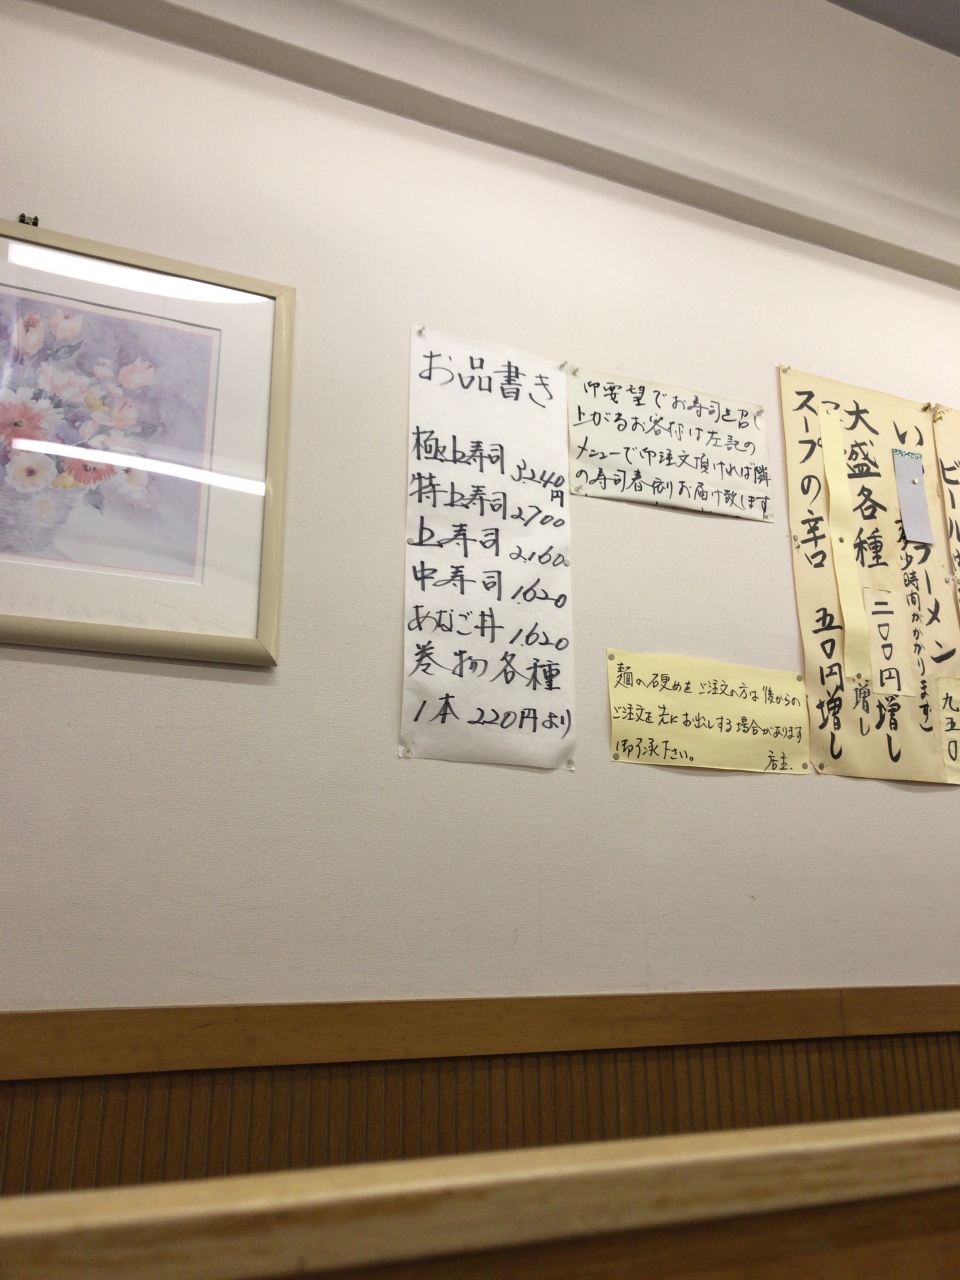 お品書き
極上寿司 3,240円
特上寿司 2,700
上寿司 2,160
中寿司 1,620
あなご丼 1,620
巻物各種
1本 220円より
御要望でお寿司を召し
上がるお客様は左記の
メニューで御注文頂ければ隣
の寿司春からお届け致します
麺の硬めをご注文の方は後からの
ご注文を先にお出しする場合があります
御了承下さい。
店主.
ビール
ラーメン
多少時間がかかります)
九五〇
大盛各種 二〇〇円増し
増し
スープの辛口 五〇円増し